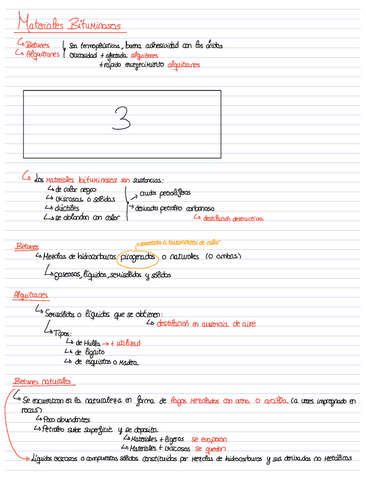 Materiales Bituminosos
Betunes Son termoplásticos, buena adhesividad con los áridos
Alquitranes Viscosidad + afectada alquitranes
+ rápido envejecimiento alquitranes
3
Los materiales bituminosos son sustancias:
de color negro
viscosas o sólidas
dúctiles
se ablandan con calor
crudos petrolíferos
derivados petróleo carbonoso
destilación destructiva
sometidos a tratamientos de calor
Betunes
Mezclas de hidrocarburos pirogenados o naturales (o ambas)
gaseosos, líquidos, semisólidos y sólidos
Alquitranes
Semisólidos o líquidos que se obtienen:
destilación en ausencia de aire
Tipos:
de Hulla → + utilidad
de lignito
de esquistos o madera
Betunes naturales
Se encuentran en la naturaleza en forma de lagos mezclados con arena o arcilla (a veces impregnado en
rocas)
Poco abundantes
Petróleo sube superficie y se deposita
Materiales + ligeros se evaporan
Materiales + viscosos se quedan
Líquidos viscosos o compuestos sólidos constituidos por mezclas de hidrocarburos y sus derivados no metálicos